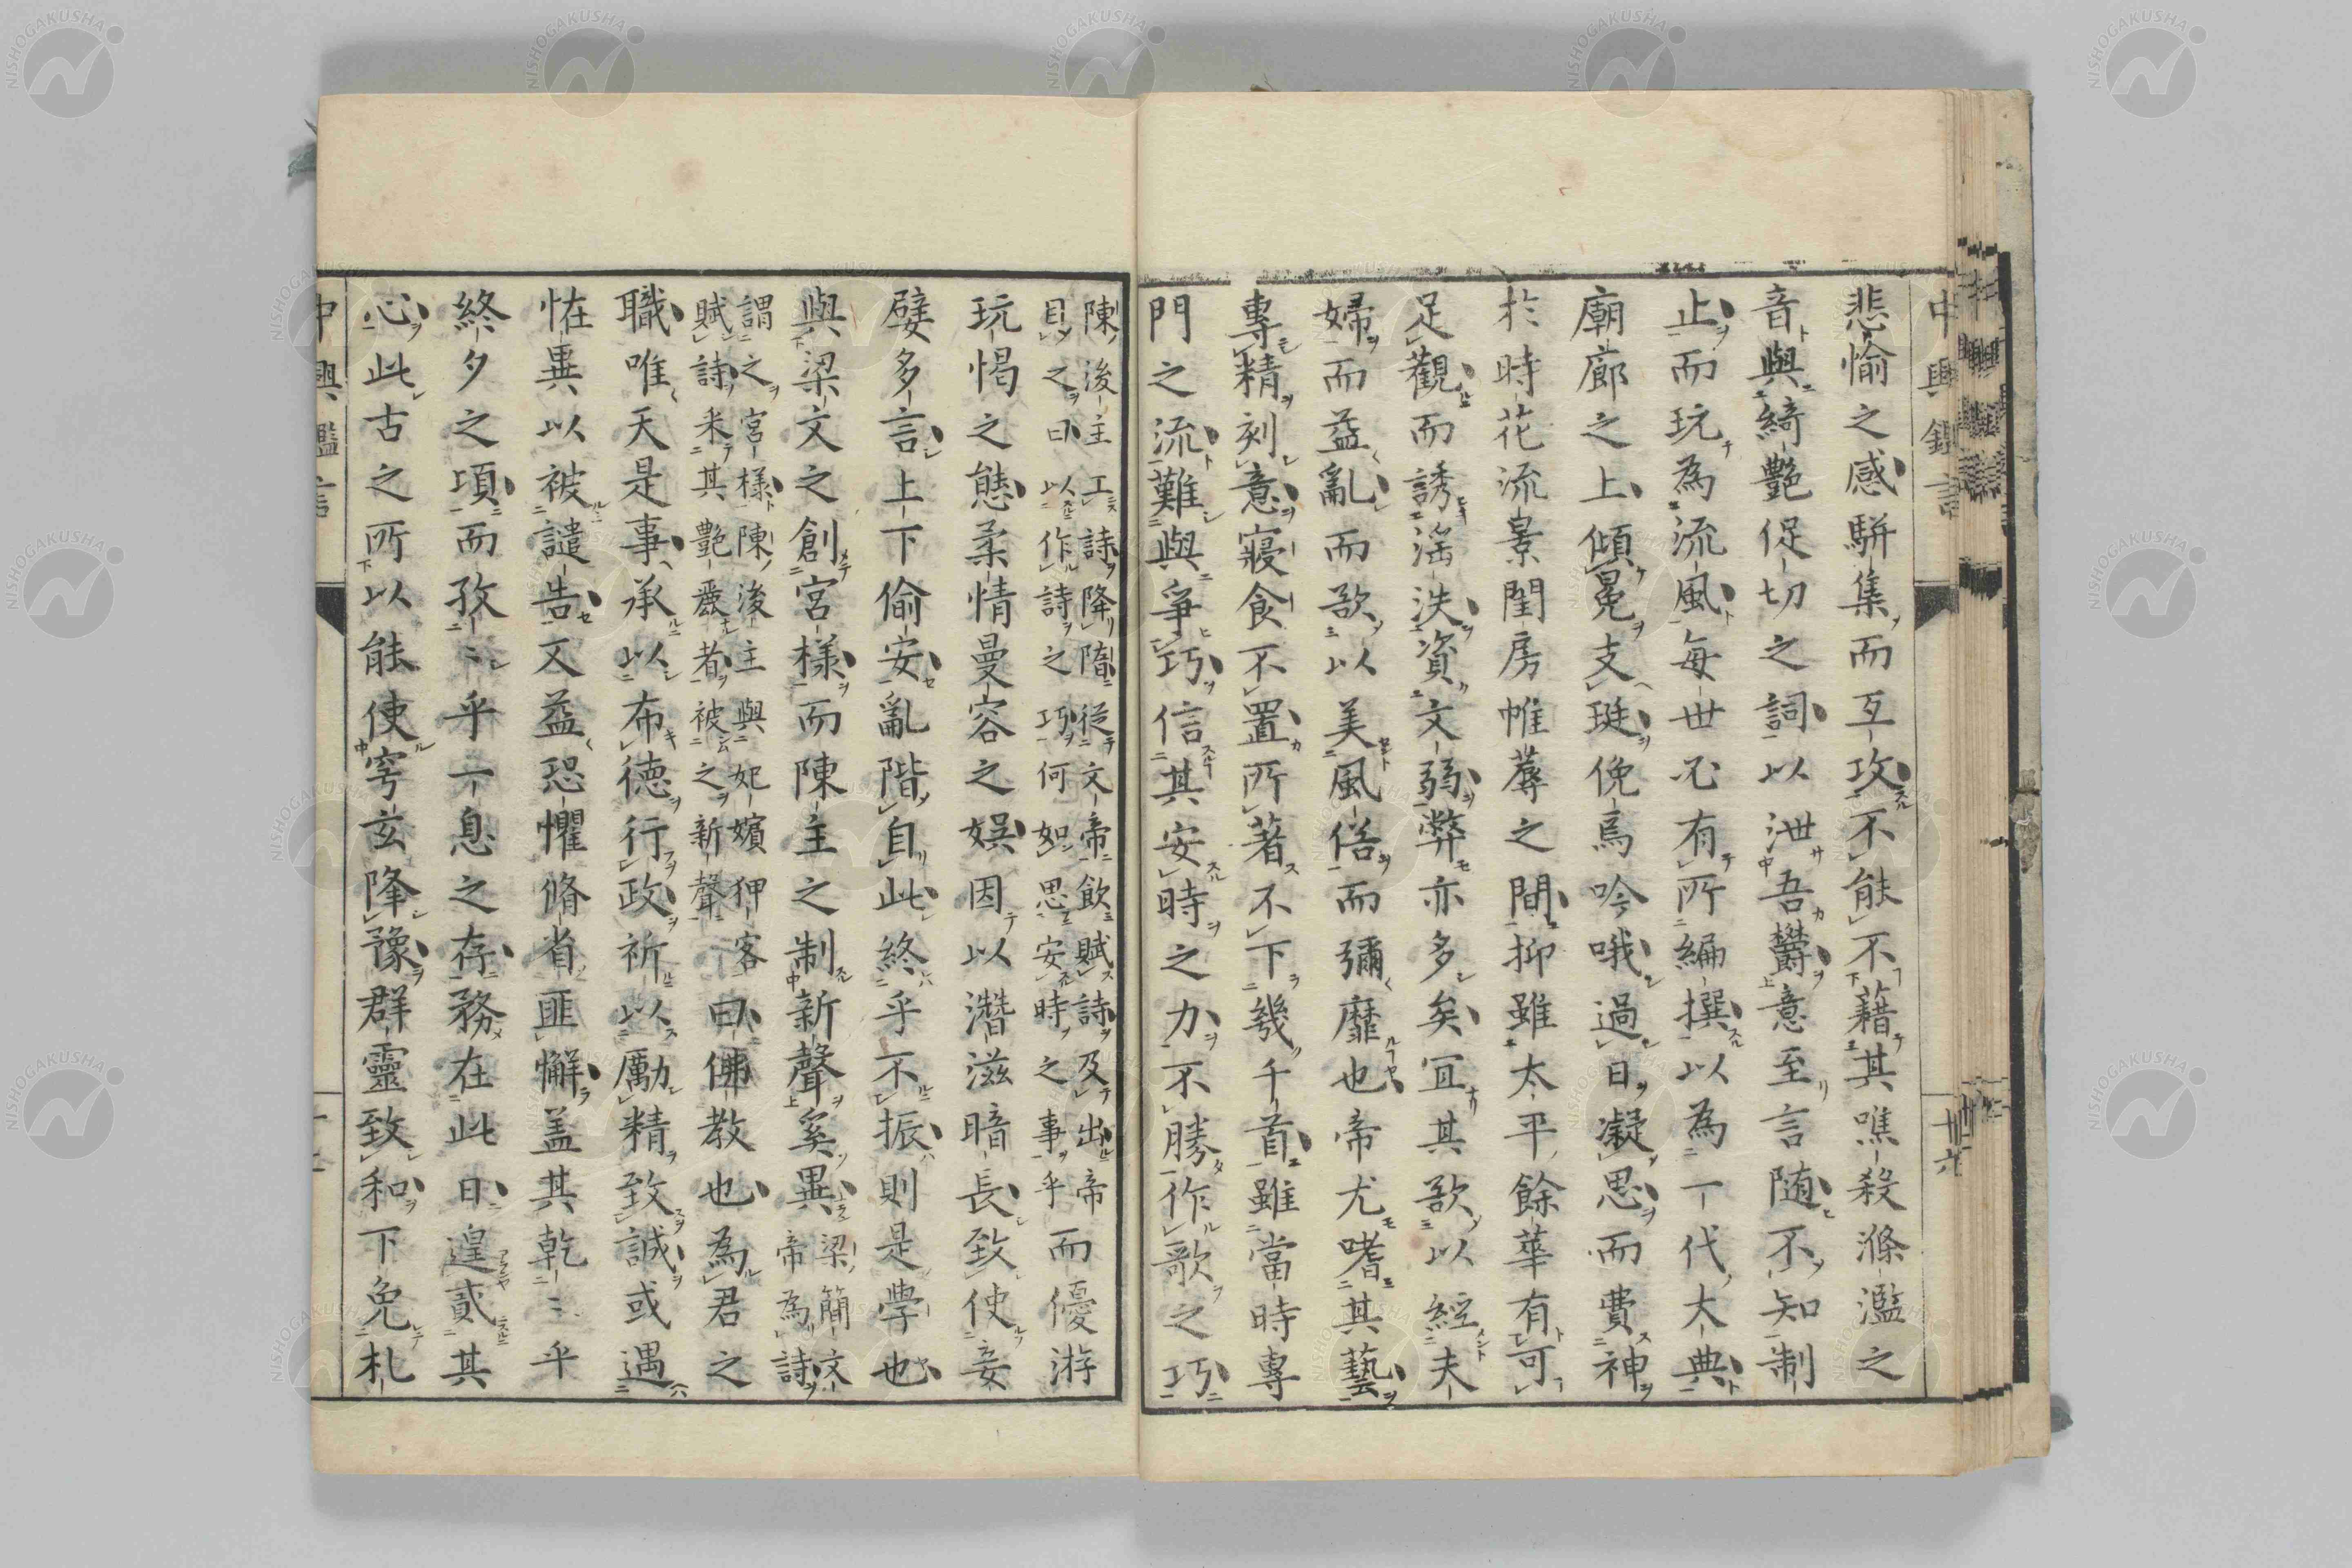 中興鑑言
廿六
悲愉之感駢集而互攻不能不藉其噍殺滌濫之
音與綺艷促切之詞以泄吾欝意至言随不知制
止而玩為流風每世必有所編撰以為一代大典
廟廊之上傾冕支珽俛焉吟哦過日凝思而費神
於時花流景閨房帷蓐之間抑雖太平餘華有可
足觀而誘滛泆資文弱弊亦多矣冝其歌以經夫
婦而益亂而歌以美風俗而彌靡也帝尤嗜其藝
專精刻意寢食不置所著不下幾千首雖當時專
門之流難與爭巧信其安時之力不勝作歌之巧
陳後主工詩降隋從文帝飲賦詩及出帝
目之曰以作詩之巧何如思安時之事乎
而優游
玩愒之態柔情曼容之娯因以潛滋暗長致使妾
嬖多言上下偷安亂階自此終乎不振則是學也
與梁文之創宮様而陳主之制新聲奚異
梁簡文
帝為詩
謂之宮様陳後主與妃嬪狎客
賦詩采其艷麗者被之新聲
曰佛教也為君之
職唯天是事承以布德行政祈以勵精致誠或遇
恠異以被譴告文益恐懼脩省匪懈盖其乾〻乎
終夕之頃而孜〻乎一息之存務在此日遑貳其
心此古之所以能使穹玄降豫群靈致和下免札
中興鑑言